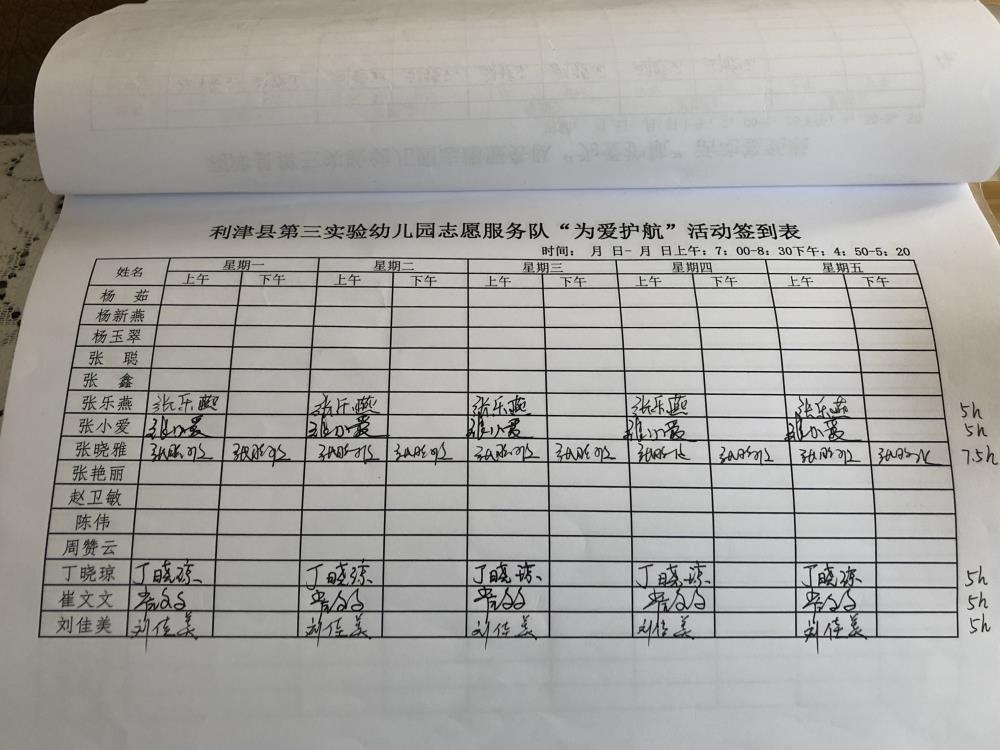 利津县第三实验幼儿园志愿服务队“为爱护航”活动签到表
时间： 月 日- 月 日上午：7：00-8：30下午：4：50-5：20
姓名 星期一 星期二 星期三 星期四 星期五
上午 下午 上午 下午 上午 下午 上午 下午 上午 下午
杨 茹
杨新燕
杨玉翠
张 聪
张 鑫
张乐燕 张乐燕 张乐燕 张乐燕 张乐燕 张乐燕 5h
张小爱 张小爱 张小爱 张小爱 张小爱 张小爱 5h
张晓雅 张晓雅 张晓雅 张晓雅 张晓雅 张晓雅 张晓雅 张晓雅 张晓雅 张晓雅 张晓雅 7.5h
张艳丽
赵卫敏
陈伟
周赞云
丁晓琼 丁晓琼 丁晓琼 丁晓琼 丁晓琼 丁晓琼 5h
崔文文 崔文文 崔文文 崔文文 崔文文 崔文文 5h
刘佳美 刘佳美 刘佳美 刘佳美 刘佳美 刘佳美 5h